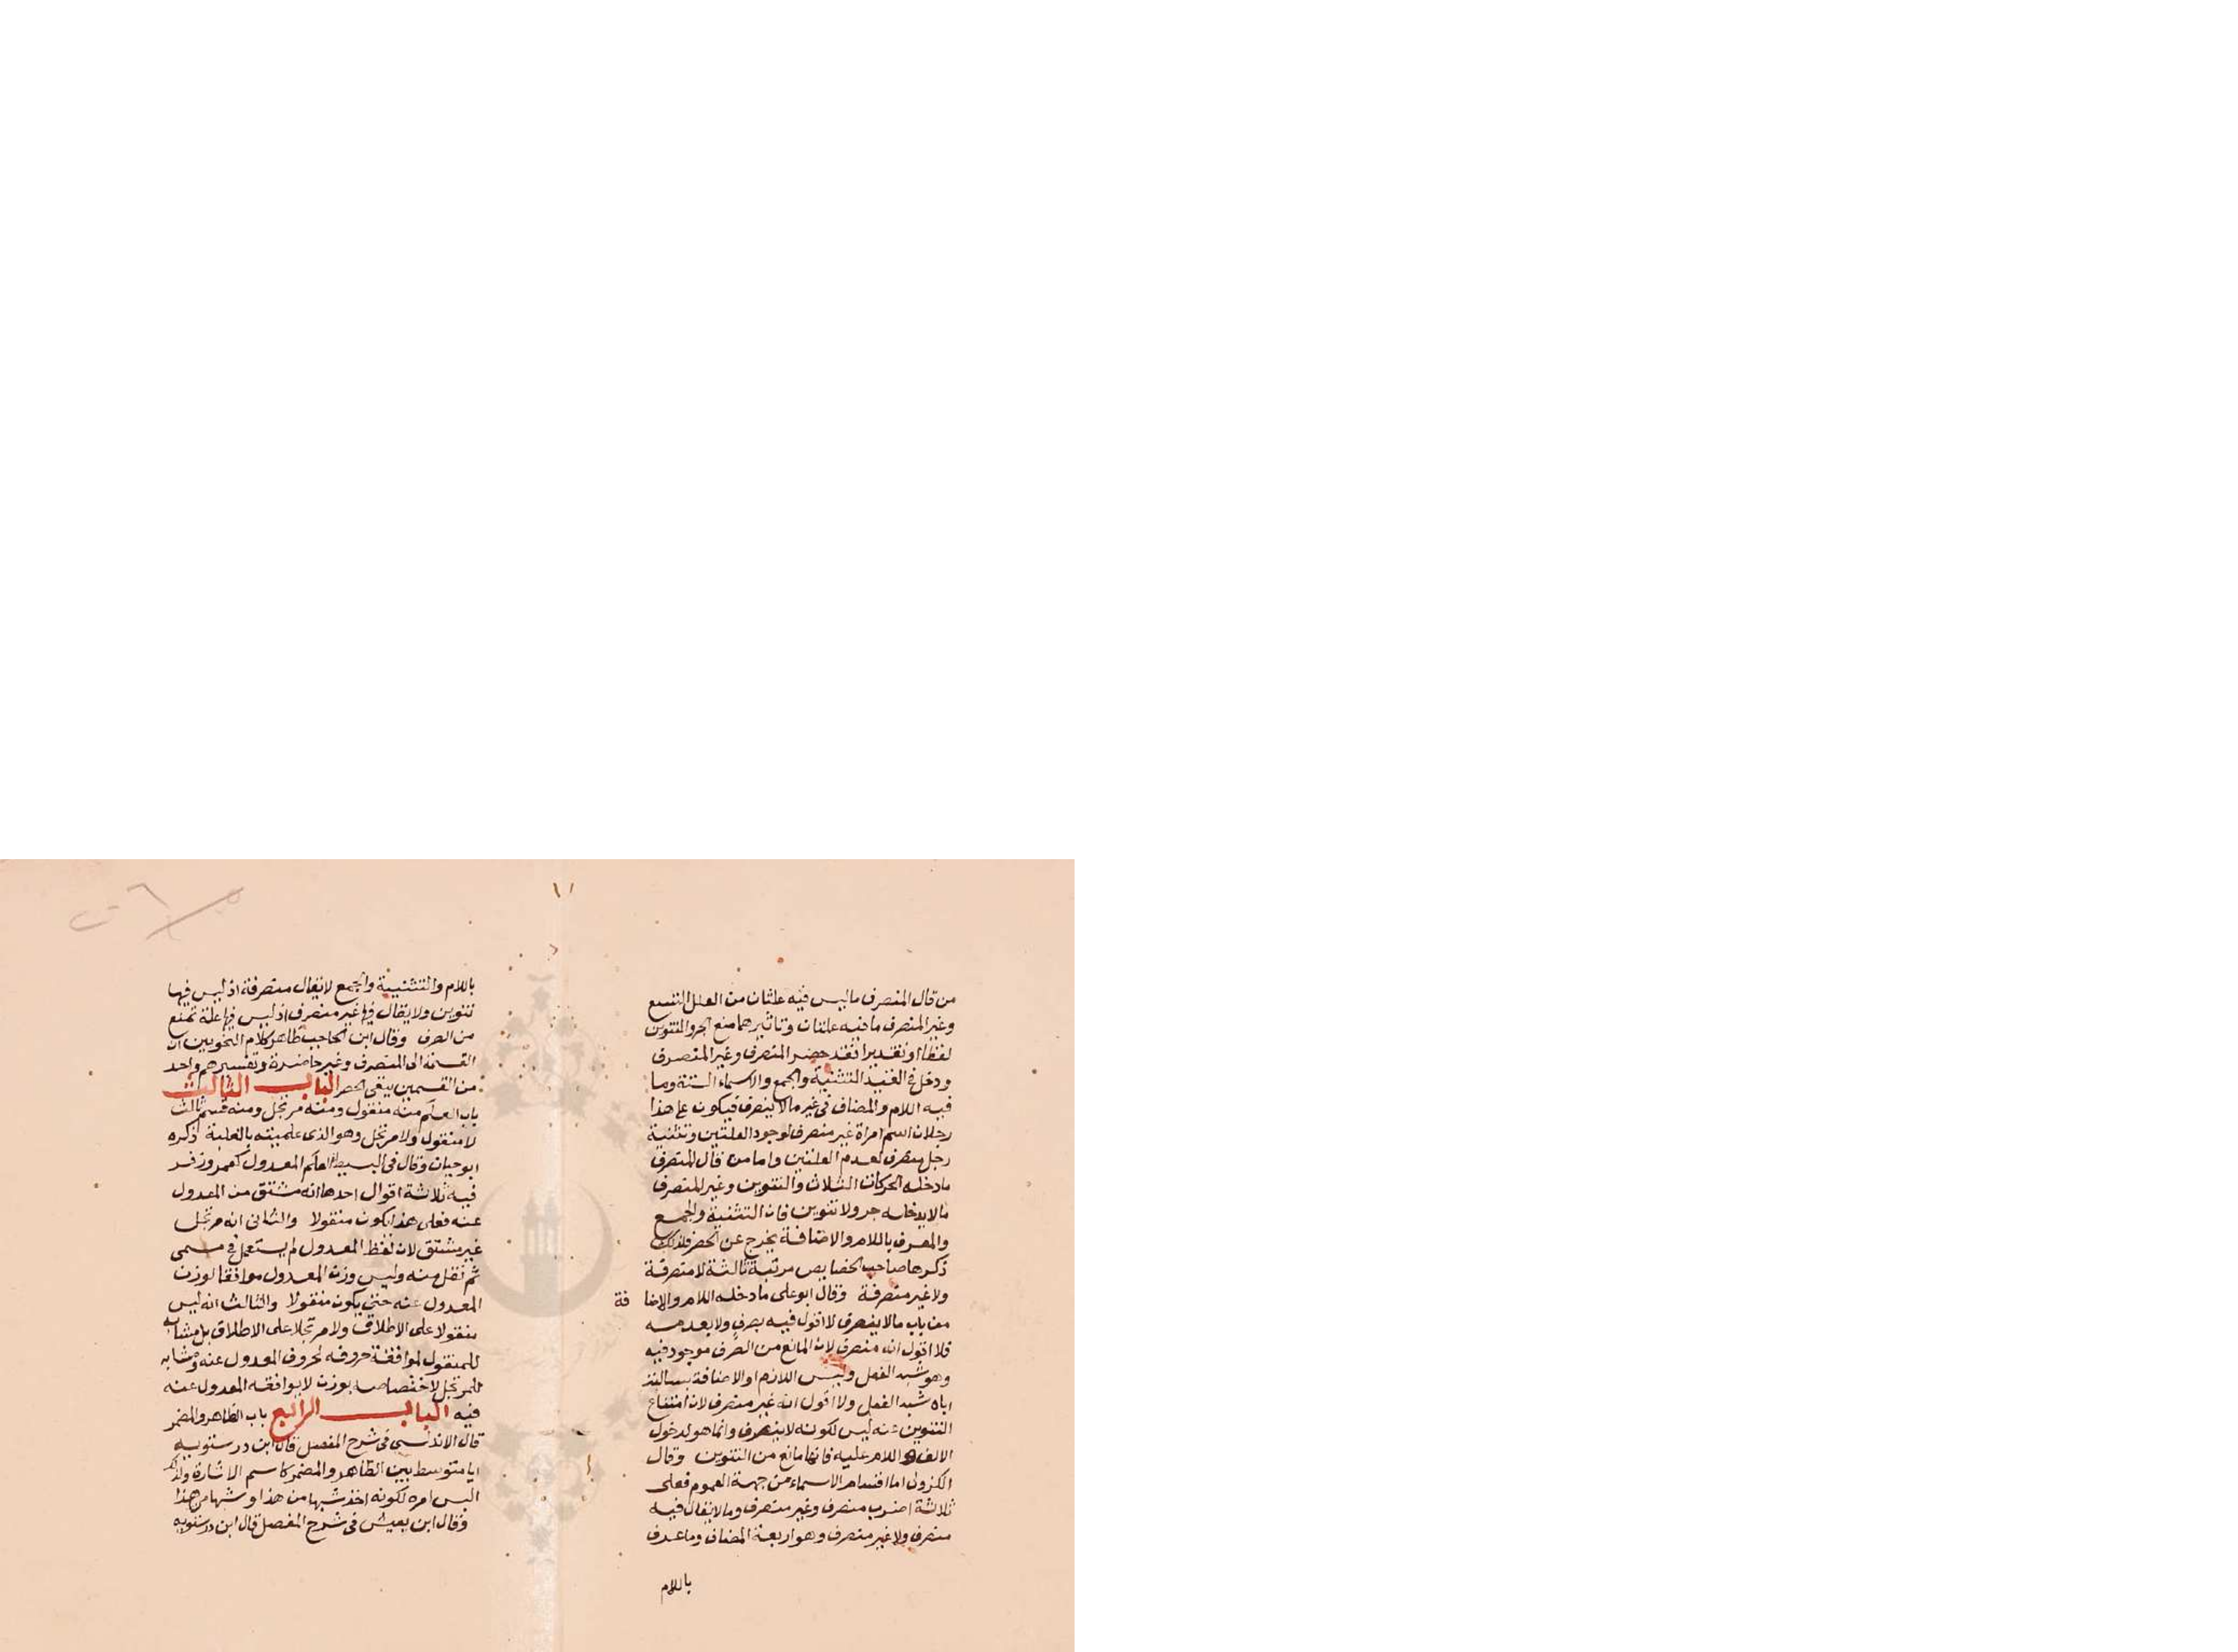 من قال المنصرف ما ليس فيه علتان من العلل التسع
وغير المنصرف ما فيه علتان وتاثيرهما منع الجر والتنوين
لفظا او تقديرا فقد حصر المنصرف وغير المنصرف
ودخل في القيد التثنية والجمع والاسماء الستة وما
فيه اللام والمضاف في غير ما لا ينصرف فيكون على هذا
رجلان اسم امراة غير منصرف لوجود العلتين وتثنية
رجل منصرف لعدم العلتين واما من قال المنصرف
ما دخله الحركات الثلاث والتنوين وغير المنصرف
ما لا يدخله جر ولا تنوين فان التثنية والجمع
والمعرف باللام والاضافة يخرج عن الحصر فلذلك
ذكرها صاحب الخصايص مرتبة ثالثة لا منصرفة
ولا غير منصرفة وقال ابو على ما دخله اللام والاضا فة
من باب ما لا ينصرف لا اقول فيه بصرف ولا بعدمه
فلا اقول انه منصرف لان المانع من الصرف موجود فيه
وهو شبه الفعل وليس اللازم او الاضافة
اياه شبه الفعل ولا اقول انه غير منصرف لان امتناع
التنوين عنه ليس لكونه لا ينصرف وانما هو لدخول
الالف و اللام عليه فانها مانع من التنوين وقال
الكزولى اما اقسام الاسماء من جهة العموم فعلى
ثلاثة اضرب منصرف وغير منصرف وما لا يقال فيه
منصرف ولا غير منصرف وهو اربعة المضاف وما عرف
باللام
باللام والتثنية والجمع لا يقال منصرفة اذ ليس فيها
تنوين ولا يقال فيها غير منصرف اذ ليس فيها علة تمنع
من الصرف وقال ابن الحاجب ظاهر كلام النحويين ان
القسمة الى المنصرف وغيره حاضرة وتفسيرهم واحد
من القسمين ينفى الحصر الباب الثالث
باب العلم منه منقول ومنه مرتجل ومنه قسم ثالث
لا منقول ولا مرتجل وهو الذى علميته بالغلبة ذكره
ابو حيان وقال في البسيط العلم المعدول كعمر وزفر
فيه ثلاثة اقوال احدها انه مشتق من المعدول
عنه فعلى هذا يكون منقولا والثانى انه مرتجل
غير مشتق لان لفظ المعدول لم يستعمل في مسمى
ثم نقل منه وليس وزن المعدول موافقا لوزن
المعدول عنه حتى يكون منقولا والثالث انه ليس
منقولا على الاطلاق ولا مرتجلا على الاطلاق بل مشابه
للمنقول لموافقة حروفه لحروف المعدول عنه ومشابه
للمرتجل لاختصاصه بوزن لا يوافقه المعدول عنه
فيه الباب الرابع باب الظاهر والمضمر
قال الاندلسى في شرح المفصل قال ابن درستويه
ايا متوسط بين الظاهر والمضمر كاسم الاشارة ولذلك
البس امره لكونه اخذ شبها من هذا وشبها من هذا
وقال ابن يعيش في شرح المفصل قال ابن درستويه